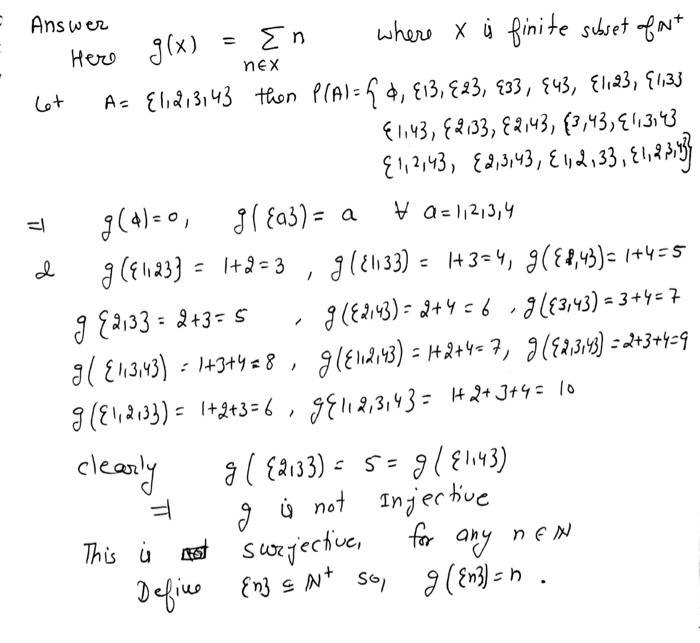 Answer
Here g(x) = Σ n where x is finite subset of ℕ⁺
n∈x
Let A = {1,2,3,4} then P(A) = { φ, {1}, {2}, {3}, {4}, {1,2}, {1,3}
{1,4}, {2,3}, {2,4}, {3,4}, {1,3,4}
{1,2,4}, {2,3,4}, {1,2,3}, {1,2,3,4}}
⇒ g(φ)=0, g({a}) = a ∀ a=1,2,3,4
& g({1,2}) = 1+2=3 , g({1,3}) = 1+3=4, g({1,4}) = 1+4=5
g {2,3} = 2+3=5 , g({2,4}) = 2+4=6 , g({3,4}) = 3+4=7
g({1,3,4}) = 1+3+4=8 , g({1,2,4}) = 1+2+4=7, g({2,3,4}) = 2+3+4=9
g({1,2,3}) = 1+2+3=6 , g{1,2,3,4} = 1+2+3+4= 10
clearly g({2,3}) = 5 = g({1,4})
⇒ g is not Injective
This is surjective, for any n ∈ ℕ
Define {n} ⊆ ℕ⁺ so, g({n})=n .